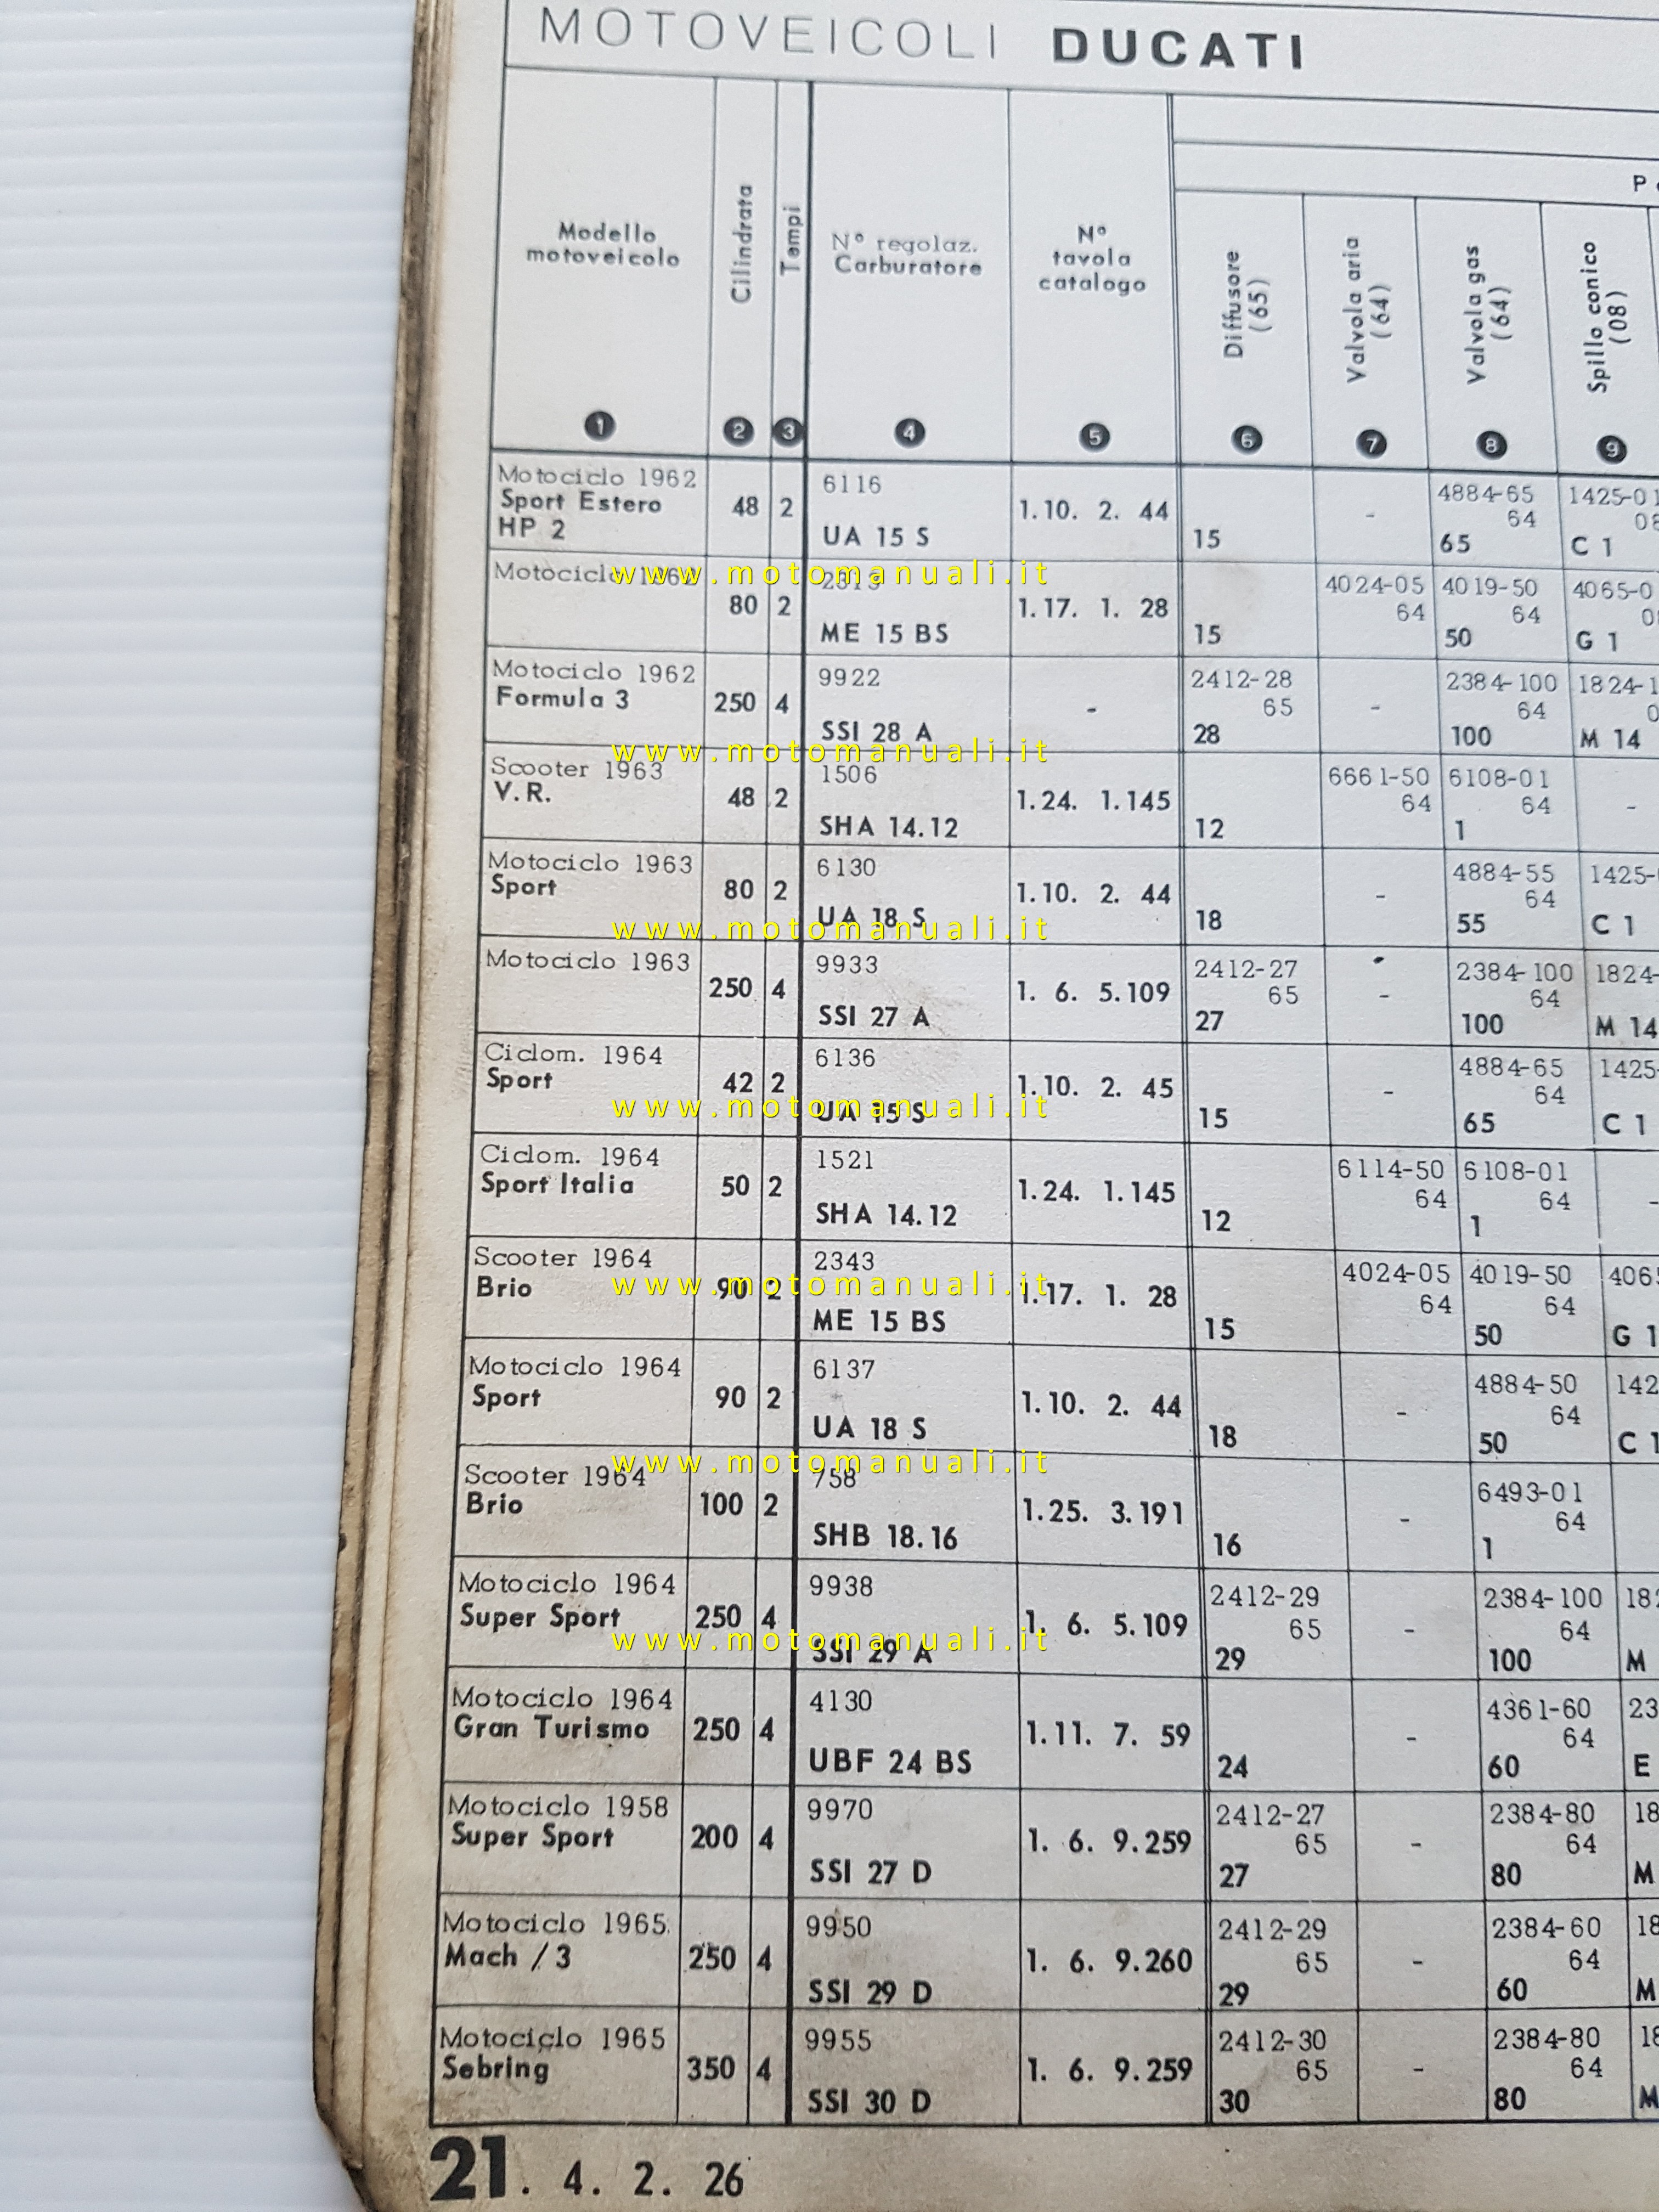 MOTOVEICOLI DUCATI
Modello
motoveicolo
Cilindrata
Tempi
N° regolaz.
Carburatore
N°
tavola
catalogo
Diffusore
(65)
Valvola aria
(64)
Valvola gas
(64)
Spillo conico
(08)
1 2 3 4 5 6 7 8 9
Motociclo 1962 6116 4884-65
Sport Estero 48 2 1.10. 2. 44 - 64
HP 2 UA 15 S 15 65 C 1
Motociclo 1962 4024-05 4019-50
80 2 1.17. 1. 28 64 64
ME 15 BS 15 50 G 1
Motociclo 1962 9922 2412-28 2384-100
Formula 3 250 4 - 65 - 64
SSI 28 A 28 100 M 14
Scooter 1963 1506 6661-50 6108-01
V.R. 48 2 1.24. 1.145 64 64 -
SHA 14.12 12 1
Motociclo 1963 6130 4884-55
Sport 80 2 1.10. 2. 44 - 64
UA 18 S 18 55 C 1
Motociclo 1963 9933 2412-27 2384-100
250 4 1. 6. 5.109 65 - 64
SSI 27 A 27 100 M 14
Ciclom. 1964 6136 4884-65
Sport 42 2 1.10. 2. 45 - 64
UA 15 S 15 65 C 1
Ciclom. 1964 1521 6114-50 6108-01
Sport Italia 50 2 1.24. 1.145 64 64 -
SHA 14.12 12 1
Scooter 1964 2343 4024-05 4019-50
Brio 90 2 1.17. 1. 28 64 64
ME 15 BS 15 50 G 1
Motociclo 1964 6137 4884-50
Sport 90 2 1.10. 2. 44 - 64
UA 18 S 18 50 C 1
Scooter 1964 758 6493-01
Brio 100 2 1.25. 3.191 - 64
SHB 18.16 16 1
Motociclo 1964 9938 2412-29 2384-100
Super Sport 250 4 1. 6. 5.109 65 - 64
SSI 29 A 29 100 M
Motociclo 1964 4130 4361-60
Gran Turismo 250 4 1.11. 7. 59 - 64
UBF 24 BS 24 60 E
Motociclo 1958 9970 2412-27 2384-80
Super Sport 200 4 1. 6. 9.259 65 - 64
SSI 27 D 27 80 M
Motociclo 1965 9950 2412-29 2384-60
Mach / 3 250 4 1. 6. 9.260 65 - 64
SSI 29 D 29 60 M
Motociclo 1965 9955 2412-30 2384-80
Sebring 350 4 1. 6. 9.259 65 - 64
SSI 30 D 30 80 M
21. 4. 2. 26
www.motomanuali.it
www.motomanuali.it
www.motomanuali.it
www.motomanuali.it
www.motomanuali.it
www.motomanuali.it
www.motomanuali.it